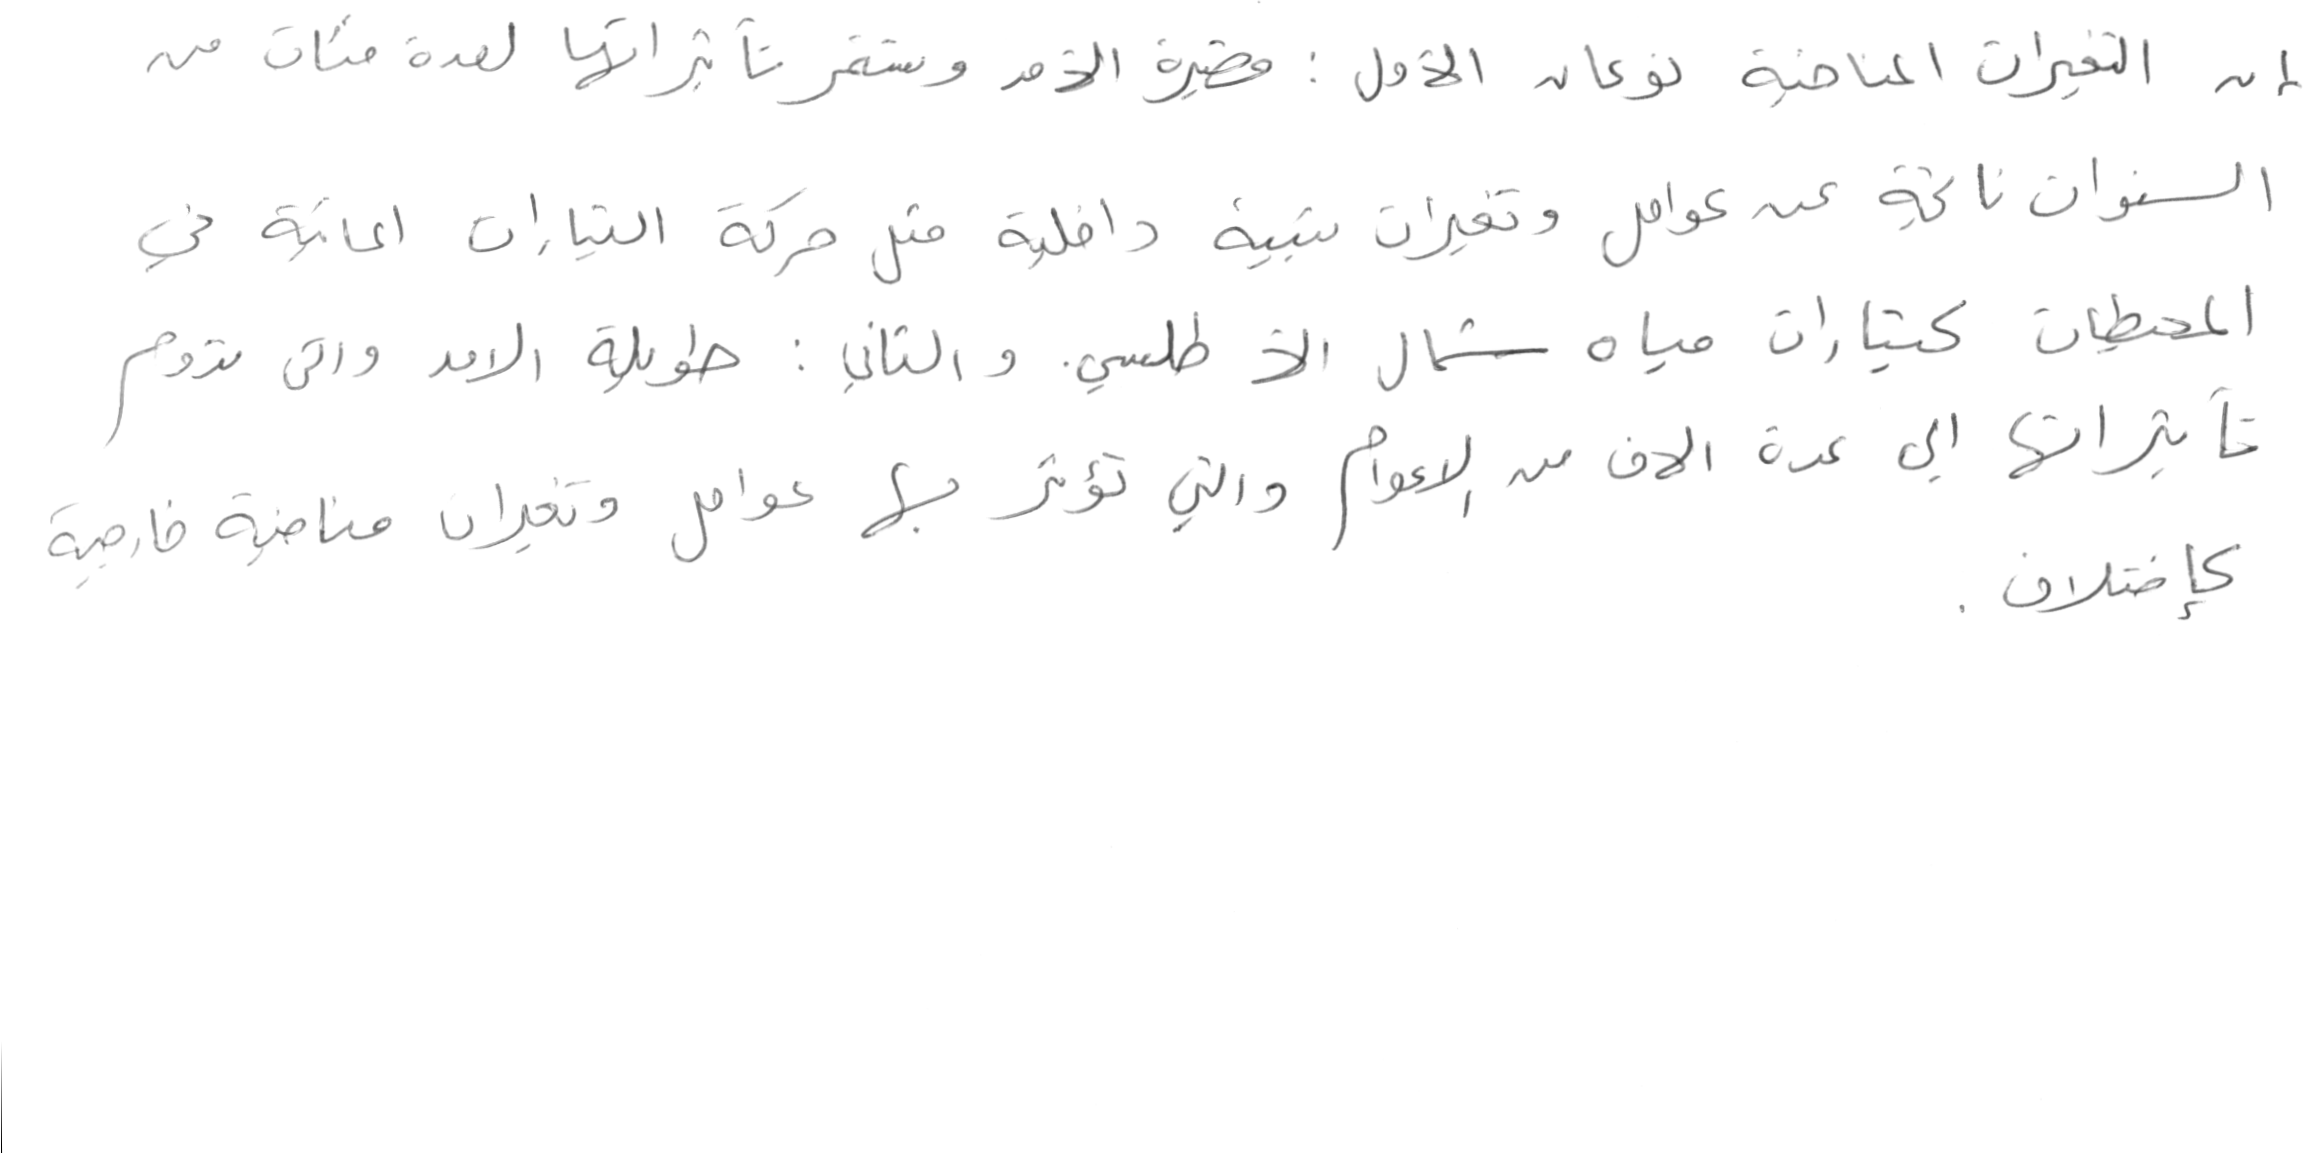 إن التغيرات المناخية نوعان الأول : قصيرة الأمد وتستمر تأثيراتها لعدة مئات من
السنوات ناتجة عن عوامل وتغيرات بيئية داخلية مثل حركة التيارات المائية في
المحيطات كتيارات مياه شمال الأطلسي. والثاني : طويلة الامد والتى تدوم
تأثيراتها الي عدة الاف من الاعوام والتي تؤثر بها عوامل وتغيرات مناخية خارجية
كإختلاف .